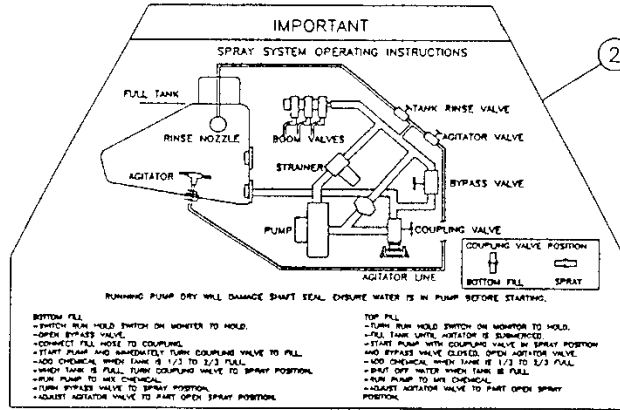 IMPORTANT
SPRAY SYSTEM OPERATING INSTRUCTIONS
2
FULL TANK
RINSE NOZZLE
BOOM VALVES
TANK RINSE VALVE
AGITATOR VALVE
STRAINER
AGITATOR
BYPASS VALVE
PUMP
COUPLING VALVE
COUPLING VALVE POSITION
BOTTOM FILL
SPRAY
AGITATOR LINE
RUNNING PUMP DRY WILL DAMAGE SHAFT SEAL. ENSURE WATER IS IN PUMP BEFORE STARTING.
BOTTOM FILL
-SWITCH RUN HOLD SWITCH ON MONITER TO HOLD.
-OPEN BYPASS VALVE.
-CONNECT FILL HOSE TO COUPLING.
-START PUMP AND IMMEDIATELY TURN COUPLING VALVE TO FILL.
-ADD CHEMICAL WHEN TANK IS 1/3 TO 2/3 FULL.
-WHEN TANK IS FULL, TURN COUPLING VALVE TO SPRAY POSITION.
-RUN PUMP TO MIX CHEMICAL.
-TURN BYPASS VALVE TO SPRAY POSITION.
-ADJUST AGITATOR VALVE TO PART OPEN SPRAY POSITION.
TOP FILL
-TURN RUN HOLD SWITCH ON MONITOR TO HOLD.
-FILL TANK UNTIL AGITATOR IS SUBMERGED.
-START PUMP WITH COUPLING VALVE IN SPRAY POSITION
AND BYPASS VALVE CLOSED, OPEN AGITATOR VALVE.
-ADD CHEMICAL WHEN TANK IS 1/3 TO 2/3 FULL.
-SHUT OFF WATER WHEN TANK IS FULL.
-RUN PUMP TO MIX CHEMICAL.
-ADJUST AGITATOR VALVE TO PART OPEN SPRAY
POSITION.